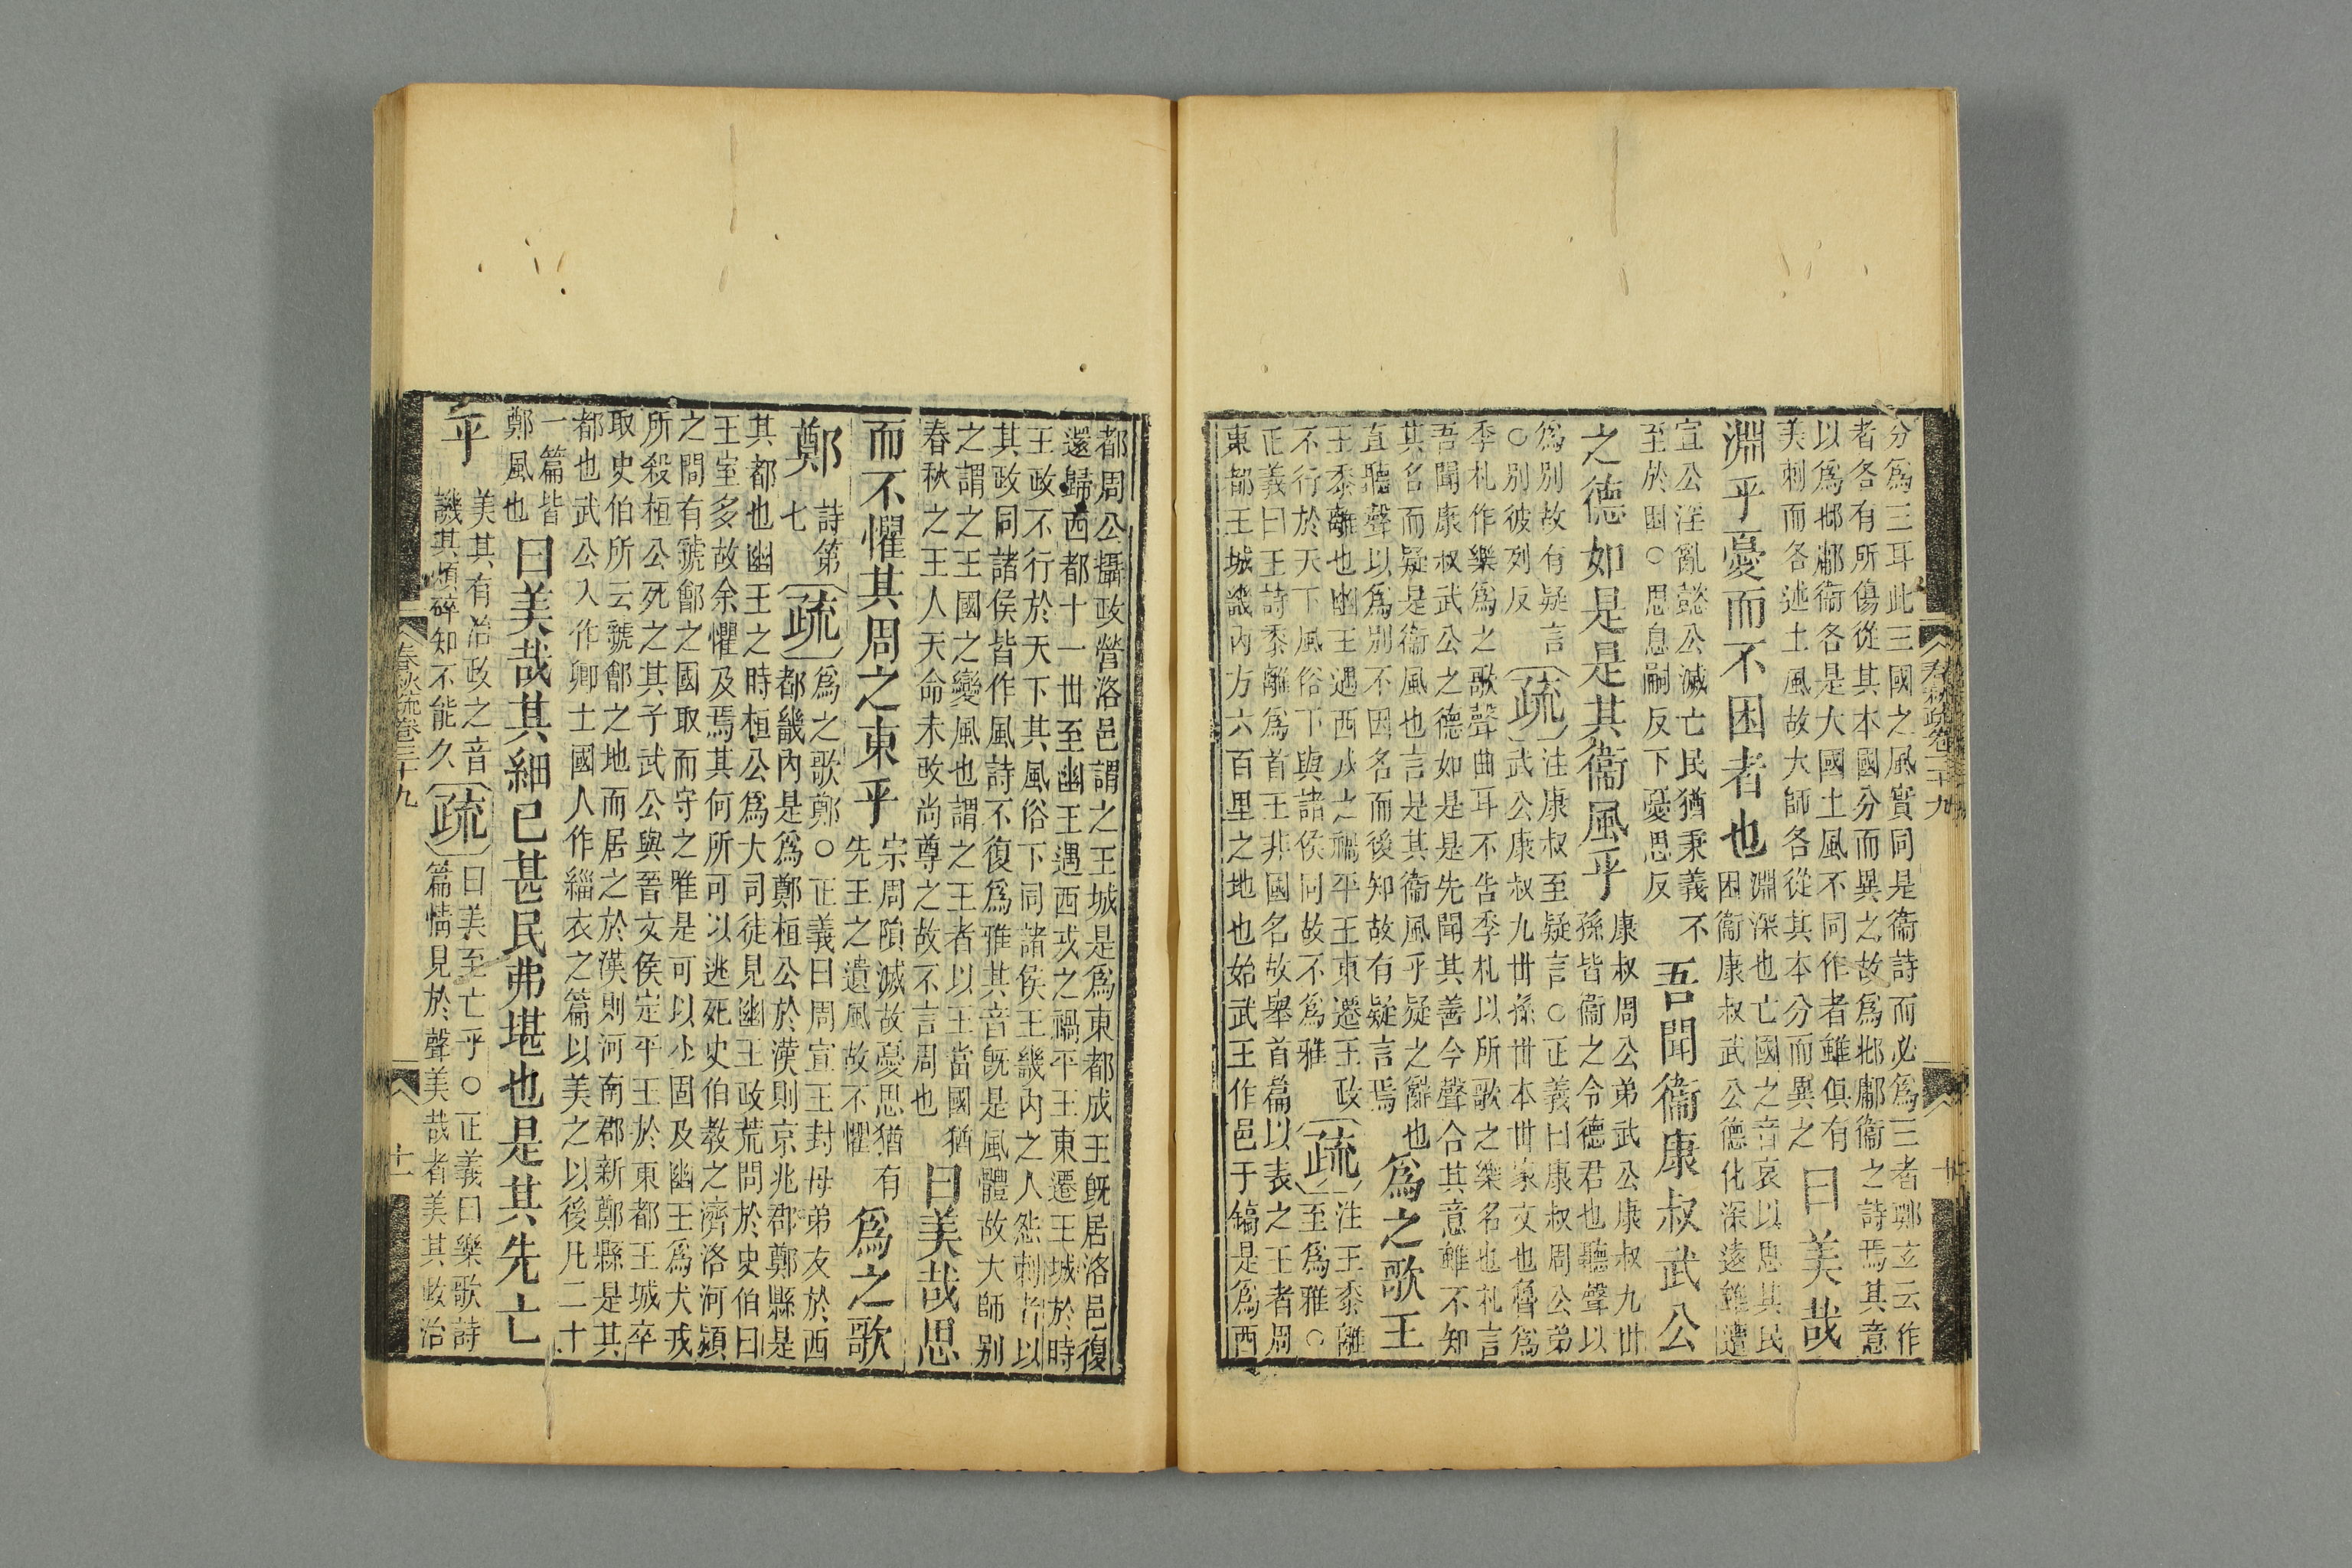 分爲三耳此三國之風實同是衞詩而必爲三者鄭玄云作
者各有所傷從其本國分而異之故爲邶鄘衞之詩焉其意
以爲邶鄘衞各是大國土風不同作者雖俱有
美刺而各述土風故大師各從其本分而異之
曰美哉
淵乎憂而不困者也
淵深也亡國之音哀以思其民
困衞康叔武公德化深遠雖遭
宣公淫亂懿公滅亡民猶秉義不
至於困○思息嗣反下憂思反
吾聞衞康叔武公
之德如是是其衞風乎
康叔周公弟武公康叔九世
孫皆衞之令德君也聽聲以
爲別故有疑言
○別彼列反
疏
注康叔至疑言○正義曰康叔周公弟
武公康叔九世孫世本世家文也魯爲
季札作樂爲之歌聲曲耳不告季札以所歌之樂名也札言
吾聞康叔武公之德如是是先聞其善今聲合其意雖不知
其名而疑是衞風也言是其衞風乎疑之辭也
直聽聲以爲別不因名而後知故有疑言焉
爲之歌王
王黍離也幽王遇西戎之禍平王東遷王政
不行於天下風俗下與諸侯同故不爲雅
疏
注王黍離
至爲雅○
正義曰王詩黍離爲首王非國名故舉首篇以表之王者周
東都王城畿內方六百里之地也始武王作邑于鎬是爲西
都周公攝政營洛邑謂之王城是爲東都成王旣居洛邑復
還歸西都十一世至幽王遇西戎之禍平王東遷王城於時
王政不行於天下其風俗下同諸侯王畿內之人怨刺者以
其政同諸侯皆作風詩不復爲雅其音旣是風體故大師別
之謂之王國之變風也謂之王者以王當國猶
春秋之王人天命未改尚尊之故不言周也
曰美哉思
而不懼其周之東乎
宗周隕滅故憂思猶有
先王之遺風故不懼
爲之歌
鄭
詩第
七
疏
爲之歌鄭○正義曰周宣王封母弟友於西
都畿內是爲鄭桓公於漢則京兆郡鄭縣是
其都也幽王之時桓公爲大司徒見幽王政荒問於史伯曰
王室多故余懼及焉其何所可以逃死史伯教之濟洛河潁
之間有虢鄶之國取而守之唯是可以少固及幽王爲犬戎
所殺桓公死之其子武公與晉文侯定平王於東都王城卒
取史伯所云虢鄶之地而居之於漢則河南郡新鄭縣是其
都也武公入作卿士國人作緇衣之篇以美之以後凡二十
一篇皆
鄭風也
曰美哉其細已甚民弗堪也是其先亡
乎
美其有治政之音
譏其煩碎知不能久
疏
曰美至亡乎○正義曰樂歌詩
篇情見於聲美哉者美其政治
春秋疏卷三十九
十一